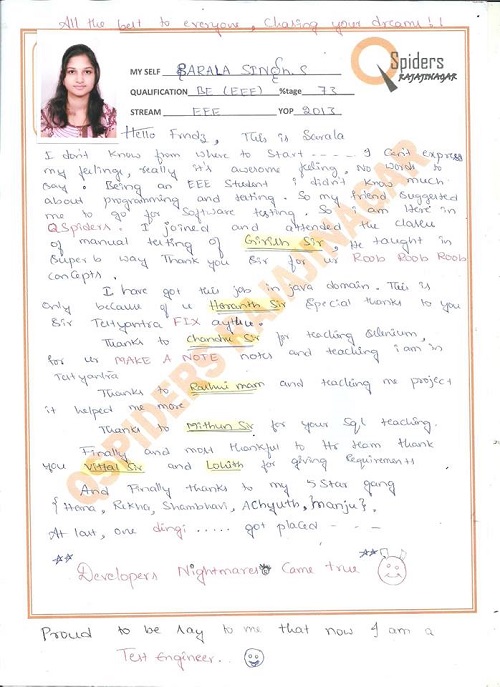 All the best to everyone, Chasing your dreams!!
QSpiders
RAJAJINAGAR
MY SELF SARALA SINGH.S
QUALIFICATION BE (EEE) %tage 73
STREAM EEE YOP 2013
Hello Frndz, This is Sarala
I don't know from where to Start - - - - . I Can't express
my feelings, really it's awesome feeling, No words to
say. Being an EEE Student i didn't know much
about programming and testing. So my friend Suggested
me to go for Software testing. So i am Here in
QSpiders. I joined and attended the classes
of manual testing of Girish Sir, He taught in
Super b way Thank you Sir for ur Roob Roob Roob
Concepts.
I have got this job in java domain. This is
Only because of u Hemanth Sir Special thanks to you
Sir Testyantra FIX aythu.
Thanks to Chandru Sir for teaching Selenium,
for ur MAKE A NOTE notes and teaching i am in
Testyantra
Thanks to Rashmi mam and teaching me project
it helped me more
Thanks to Mithun Sir for your Sql teaching.
Finally and most thankful to Hr team thank
you Vittal Sir and Lohith for giving Requirements
And Finally thanks to my 5 Star gang
{Hema, Rekha, Shambhavi, Achyuth, Manju}.
At last, one dingi ..... got placed - - -
Developers Nightmares Came true
Proud to be say to me that now I am a
Test Engineer..
QSPIDERS RAJAJINAGAR